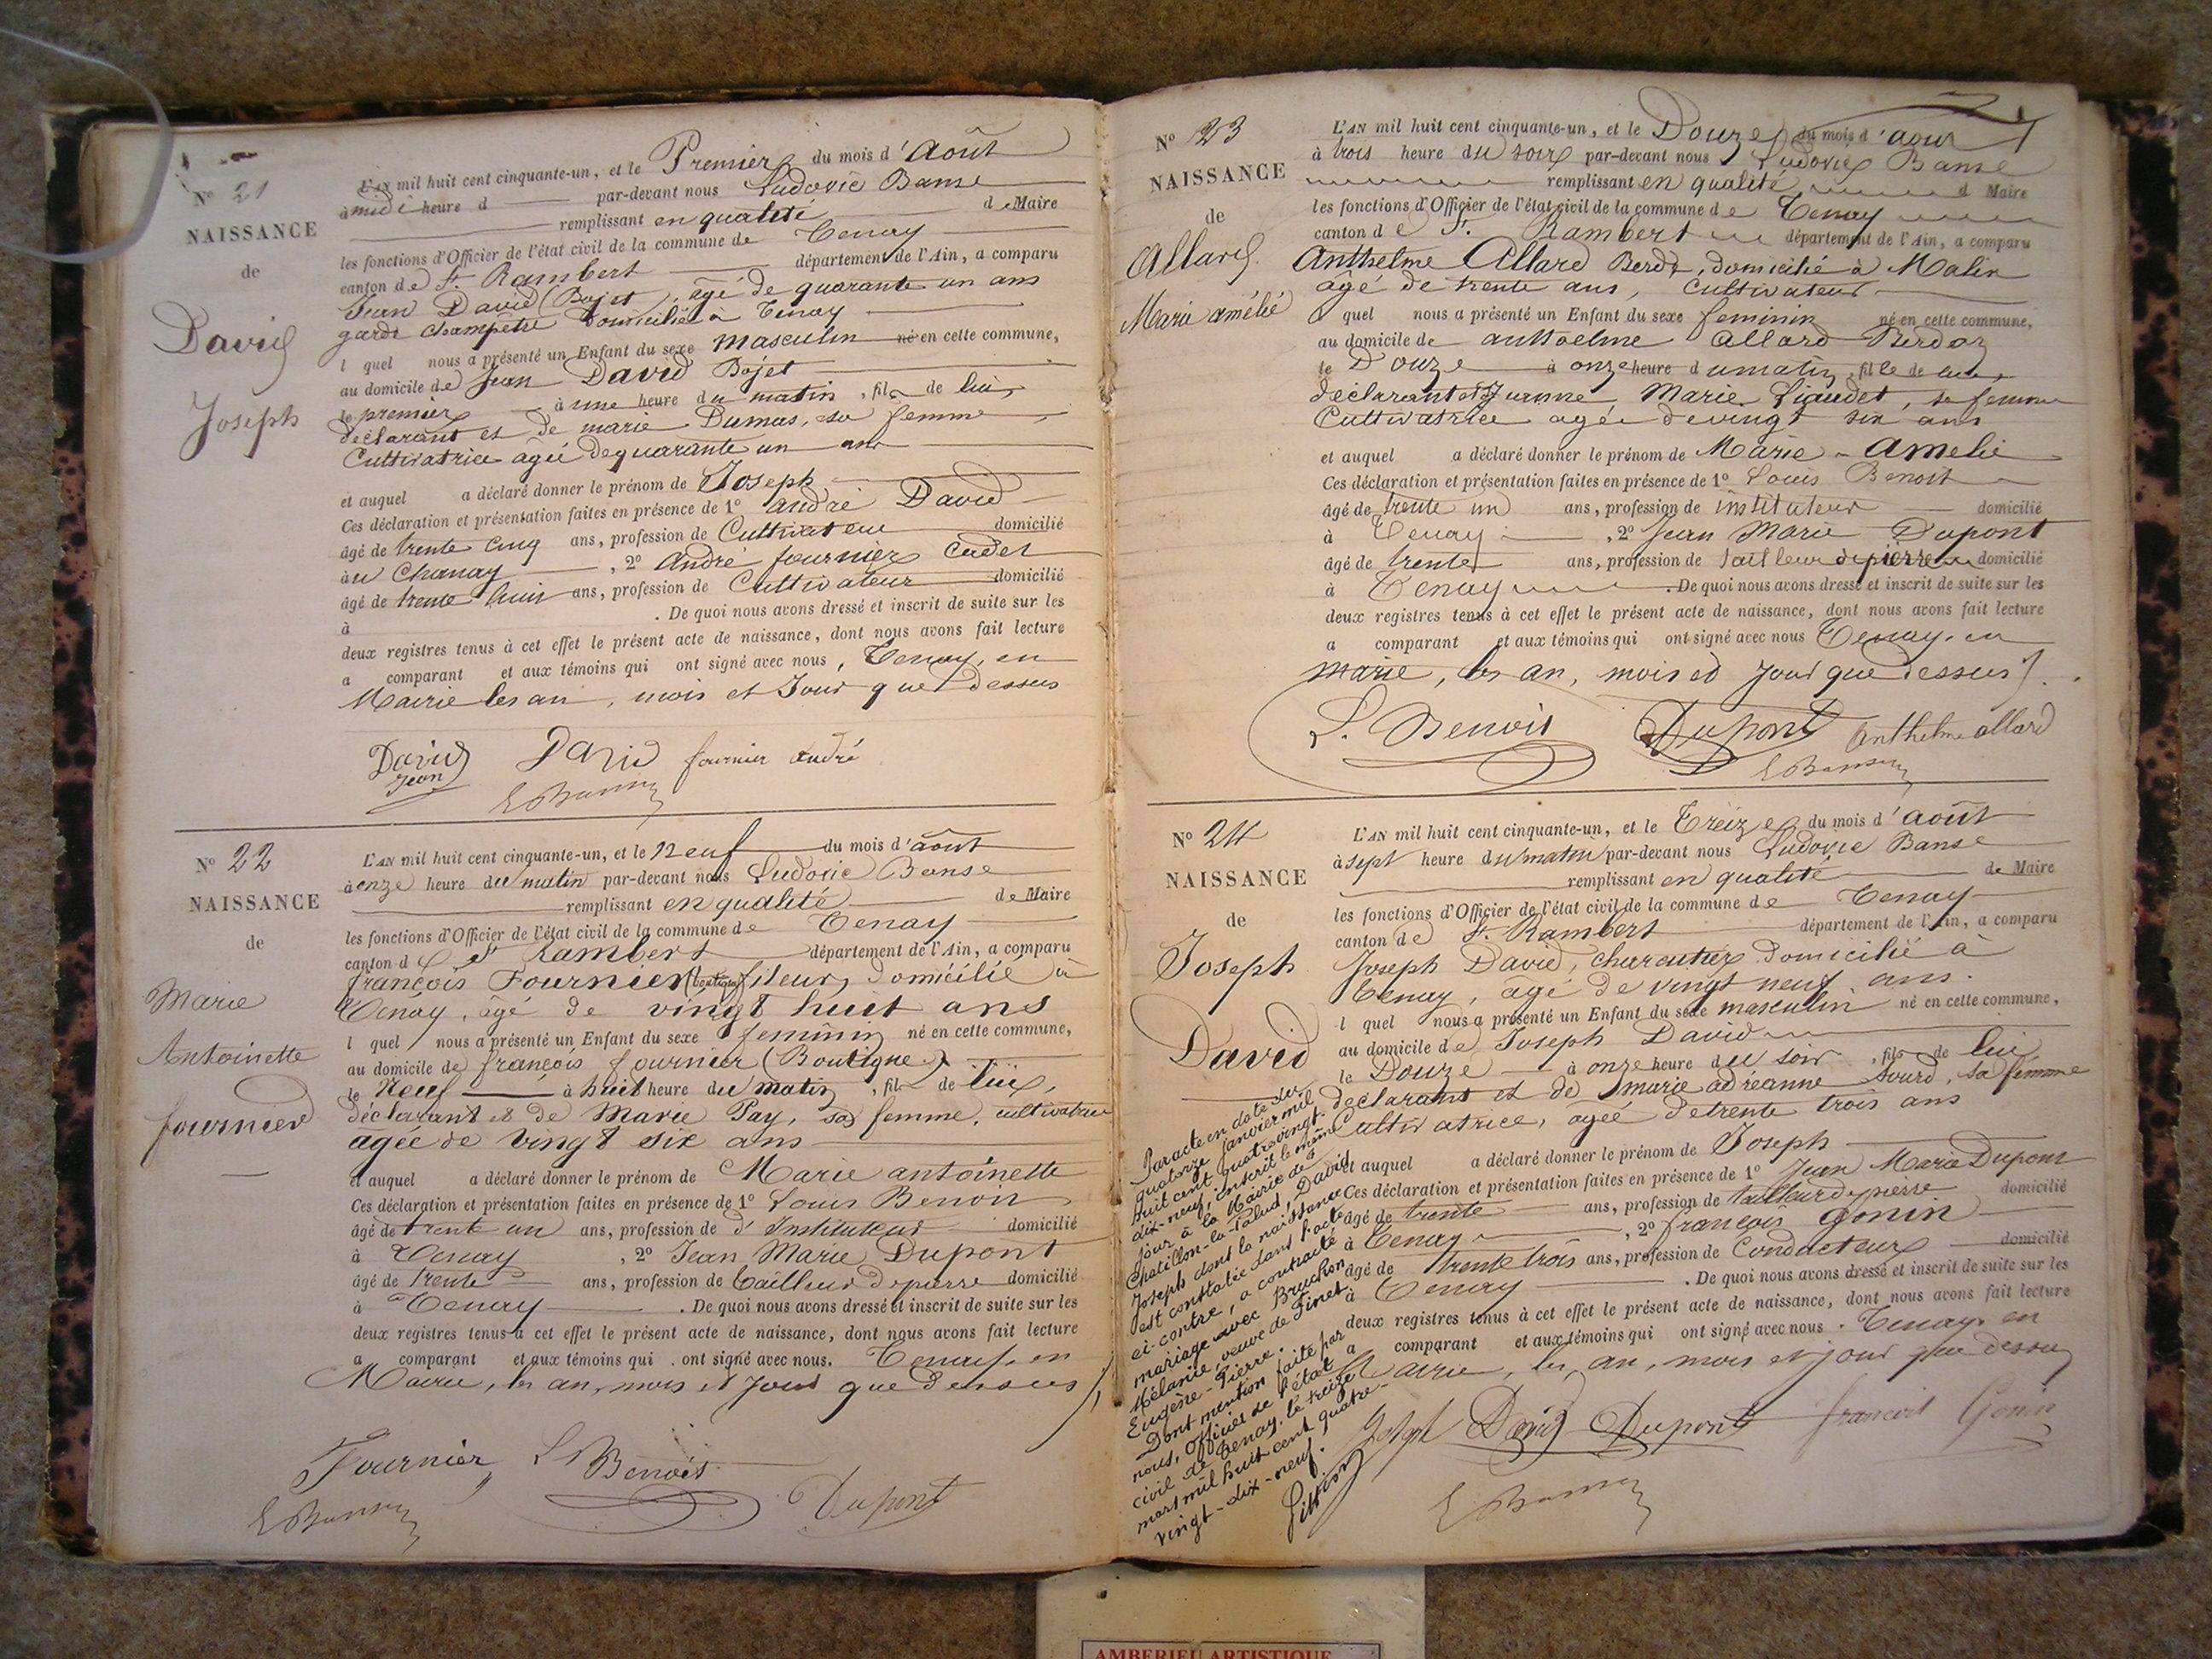 Nº 21
NAISSANCE
de
David
Joseph
L'AN mil huit cent cinquante-un, et le Premier du mois d'Août
à midi heure d par-devant nous Ludovic Banse
remplissant en qualité de Maire
les fonctions d'Officier de l'état civil de la commune de Tenay
canton de St. Rambert département de l'Ain, a comparu
Jean David (Bojet), agé de quarante un ans
garde champetre domicilié à Tenay
l quel nous a présenté un Enfant du sexe masculin né en cette commune,
au domicile de Jean David Bojet
le premier à une heure du matin, fils de lui,
déclarant et de marie Dumas, sa femme
Cultivatrice agée de quarante un ans
et auquel a déclaré donner le prénom de Joseph
Ces déclaration et présentation faites en présence de 1º andré David
âgé de trente cinq ans, profession de Cultivateur domicilié
àu Chanay, 2º André fournier Cadet
âgé de trente huit ans, profession de Cultivateur domicilié
à . De quoi nous avons dressé et inscrit de suite sur les
deux registres tenus à cet effet le présent acte de naissance, dont nous avons fait lecture
a comparant et aux témoins qui ont signé avec nous, Tenay, en
Mairie les an, mois et Jour que dessus
David Jean David fournier andré
L Banse
Nº 22
NAISSANCE
de
Marie
Antoinette
fournier
L'AN mil huit cent cinquante-un, et le neuf du mois d'août
à onze heure du matin par-devant nous Ludovic Banse
remplissant en qualité de Maire
les fonctions d'Officier de l'état civil de la commune de Tenay
canton de St Rambert département de l'Ain, a comparu
françois Fournier (boutique) fileur, domicilié à
Tenay, âgé de vingt huit ans
l quel nous a présenté un Enfant du sexe feminin né en cette commune,
au domicile de françois fournier (Boutique)
le Neuf à huit heure du matin, fil de lui,
déclarant et de Marie Pay, sa femme, cultivatrice
agée de vingt six ans
et auquel a déclaré donner le prénom de Marie antoinette
Ces déclaration et présentation faites en présence de 1º Louis Benoit
âgé de trente un ans, profession de d'Instituteur domicilié
à Tenay, 2º Jean Marie Dupont
âgé de trente ans, profession de tailleur de pierre domicilié
à Tenay . De quoi nous avons dressé et inscrit de suite sur les
deux registres tenus à cet effet le présent acte de naissance, dont nous avons fait lecture
a comparant et aux témoins qui ont signé avec nous. Tenay, en
Mairie, les an, mois et jour que dessus
Fournier L Benoit Dupont
L Banse
Nº 23
NAISSANCE
de
Allard
Marie amélie
L'AN mil huit cent cinquante-un, et le Douze du mois d'aout
à trois heure du soir par-devant nous Ludovic Banse
remplissant en qualité d Maire
les fonctions d'Officier de l'état civil de la commune de Tenay
canton de St. Rambert département de l'Ain, a comparu
Anthelme Allard Berdoz, domicilié à Malix
âgé de trente ans, Cultivateur
l quel nous a présenté un Enfant du sexe feminin né en cette commune,
au domicile de anthelme Allard Berdoz
le Douze à onze heure du matin, fille de lui,
déclarant et Jeanne Marie Liaudet, sa femme
Cultivatrice agée de vingt six ans
et auquel a déclaré donner le prénom de Marie - Amelie
Ces déclaration et présentation faites en présence de 1º Louis Benoit
âgé de trente un ans, profession de instituteur domicilié
à Tenay, 2º Jean Marie Dupont
âgé de trente ans, profession de tailleur de pierre domicilié
à Tenay . De quoi nous avons dressé et inscrit de suite sur les
deux registres tenus à cet effet le présent acte de naissance, dont nous avons fait lecture
a comparant et aux témoins qui ont signé avec nous Tenay, en
mairie, les an, mois et jour que dessus.
L. Benoit Dupont Anthelme allard
L Banse
Nº 24
NAISSANCE
de
Joseph
David
L'AN mil huit cent cinquante-un, et le Treize du mois d'août
à sept heure du matin par-devant nous Ludovic Banse
remplissant en qualité de Maire
les fonctions d'Officier de l'état civil de la commune de Tenay
canton de St. Rambert département de l'Ain, a comparu
Joseph David, charcutier domicilié à
Tenay, agé de vingt neuf ans.
l quel nous a présenté un Enfant du sexe masculin né en cette commune,
au domicile de Joseph David
le Douze à onze heure du soir, fils de lui
déclarant et de marie adréanne Sourd, sa femme
Cultivatrice, agée de trente trois ans
et auquel a déclaré donner le prénom de Joseph
Ces déclaration et présentation faites en présence de 1º Jean Marie Dupont
âgé de trente ans, profession de tailleur de pierre domicilié
à Tenay, 2º françois Gonin
âgé de trente trois ans, profession de Conducteur domicilié
à Tenay . De quoi nous avons dressé et inscrit de suite sur les
deux registres tenus à cet effet le présent acte de naissance, dont nous avons fait lecture
a comparant et aux témoins qui ont signé avec nous. Tenay, en
Mairie, les an, mois et jour que dessus
Joseph David Dupont francois Gonin
L Banse
Par acte en date du
quatorze janvier mil
huit cent quatre vingt-
dix-neuf, inscrit le même
jour à la Mairie de
Chatillon-la-Palud, David
Joseph dont la naissance
est constatée dans l'acte
ci-contre, a contracté
mariage avec Bruchon
Mélanie, veuve de Finet
Eugène-Pierre.
Dont mention faite par
nous, officier de l'état
civil de Tenay, le treize
mars mil huit cent quatre-
vingt-dix-neuf.
AMBERIEU ARTISTIQUE